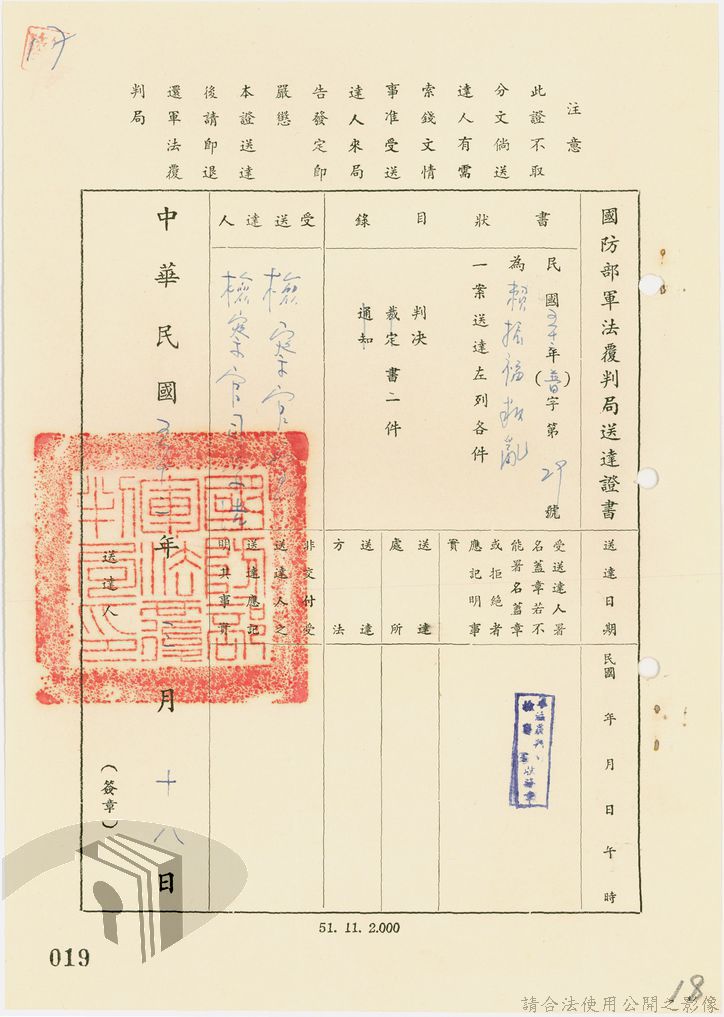 注意
此證不取
分文倘送
達人有需
索錢文情
事准受送
達人來局
告發定即
嚴懲
本證送達
後請即退
還軍法覆
判局
國防部軍法覆判局送達證書
書狀目錄
民國五十二年(普)字第29號
為賴振福叛亂
一案送達左列各件
判決
裁定書二件
通知
受送達人
檢察官
檢察官
送達日期
民國 年 月 日 午 時
受送達人署
名蓋章若不
能署名蓋章
或拒絕者
應記明事
實
送達處所
送達方法
非交付受
送達人之
送達應記
明其事實
中華民國五十二年二月十八日
送達人
(簽章)
國防部軍法覆判局印
51. 11. 2.000
019
18
請合法使用公開之影像